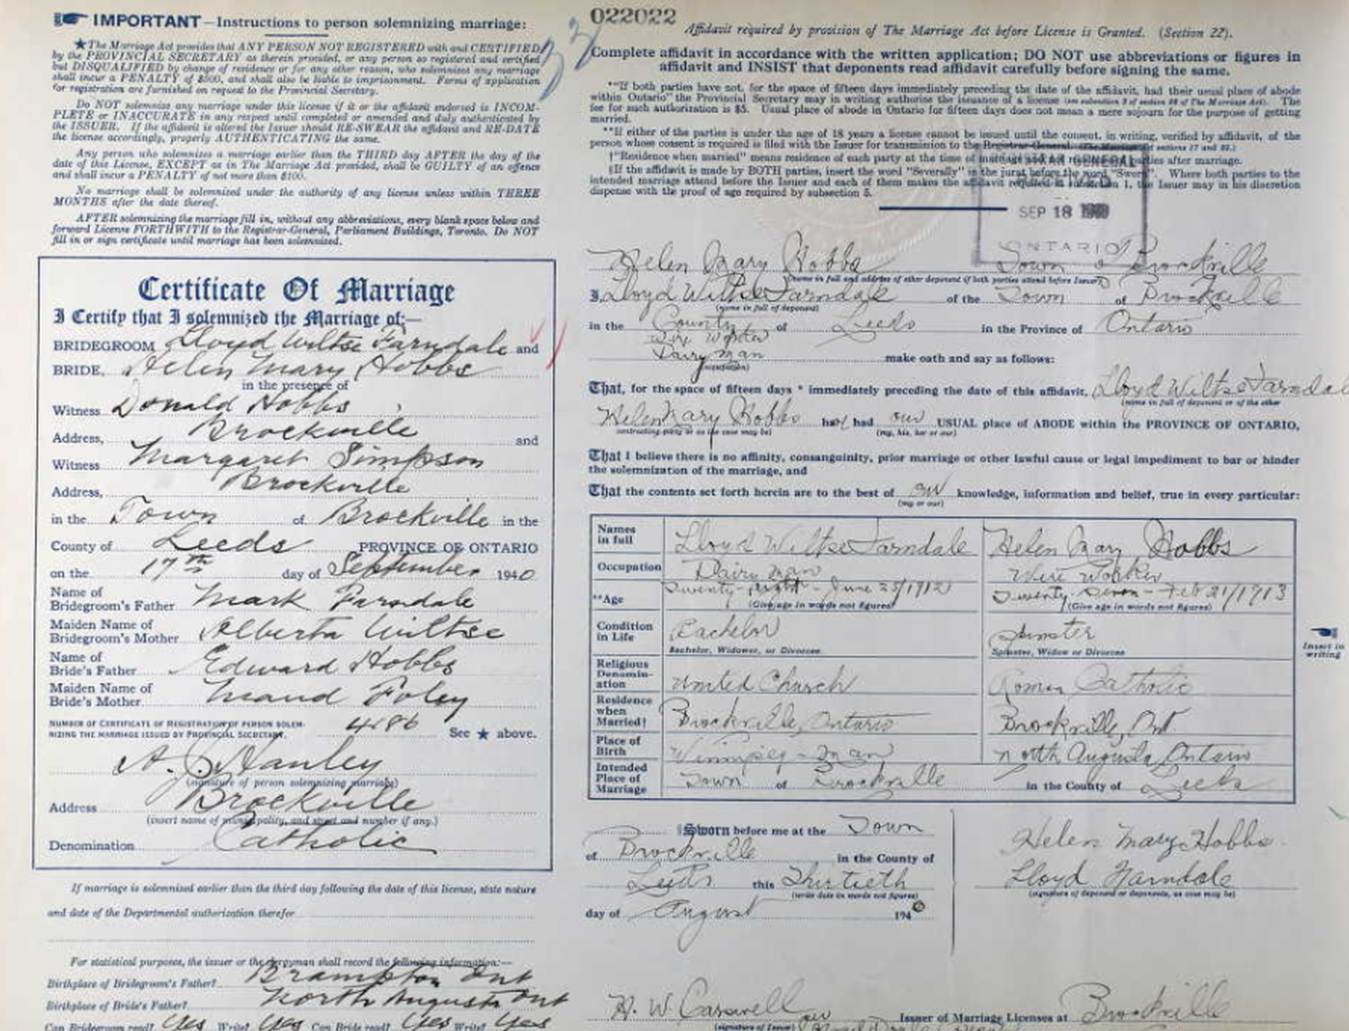 IMPORTANT—Instructions to person solemnizing marriage:
★The Marriage Act provides that ANY PERSON NOT REGISTERED with and CERTIFIED
by the PROVINCIAL SECRETARY as therein provided, or any person so registered and certified
but DISQUALIFIED by change of residence or for any other reason, who solemnizes any marriage
shall incur a PENALTY of $500, and shall also be liable to imprisonment. Forms of application
for registration are furnished on request to the Provincial Secretary.
Do NOT solemnize any marriage under this license if it or the affidavit endorsed is INCOM-
PLETE or INACCURATE in any respect until completed or amended and duly authenticated by
the ISSUER. If the affidavit is altered the Issuer should RE-SWEAR the affidavit and RE-DATE
the license accordingly, properly AUTHENTICATING the same.
Any person who solemnizes a marriage earlier than the THIRD day AFTER the day of the
date of this License, EXCEPT as in The Marriage Act provided, shall be GUILTY of an offence
and shall incur a PENALTY of not more than $100.
No marriage shall be solemnized under the authority of any license unless within THREE
MONTHS after the date thereof.
AFTER solemnizing the marriage fill in, without any abbreviations, every blank space below and
forward License FORTHWITH to the Registrar-General, Parliament Buildings, Toronto. Do NOT
fill in or sign certificate until marriage has been solemnized.
Certificate Of Marriage
I Certify that I solemnized the Marriage of:—
BRIDEGROOM Lloyd Wiltse Farndale and
BRIDE, Helen Mary Hobbs
in the presence of
Witness Donald Hobbs
Address, Brockville and
Witness Margaret Simpson
Address, Brockville
in the Town of Brockville in the
County of Leeds PROVINCE OF ONTARIO
on the 17th day of September 1940
Name of
Bridegroom's Father Mark Farndale
Maiden Name of
Bridegroom's Mother Alberta Wiltse
Name of
Bride's Father Edward Hobbs
Maiden Name of
Bride's Mother Maud Foley
NUMBER OF CERTIFICATE OF REGISTRATION OF PERSON SOLEM-
NIZING THE MARRIAGE ISSUED BY PROVINCIAL SECRETARY. 4486 See ★ above.
A. J. Hanley
(signature of person solemnizing marriage)
Address Brockville
(insert name of municipality, and street and number if any.)
Denomination Catholic
If marriage is solemnized earlier than the third day following the date of this license, state nature
and date of the Departmental authorization therefor
For statistical purposes, the issuer or the clergyman shall record the following information:—
Birthplace of Bridegroom's Father? Brampton Ont
Birthplace of Bride's Father? North Augusta Ont
Can Bridegroom read? Yes Write? Yes Can Bride read? Yes Write? Yes
022022
Affidavit required by provision of The Marriage Act before License is Granted. (Section 22).
Complete affidavit in accordance with the written application; DO NOT use abbreviations or figures in
affidavit and INSIST that deponents read affidavit carefully before signing the same.
*"If both parties have not, for the space of fifteen days immediately preceding the date of the affidavit, had their usual place of abode
within Ontario" the Provincial Secretary may in writing authorize the issuance of a license (see subsection 3 of section 22 of The Marriage Act). The
fee for such authorization is $5. Usual place of abode in Ontario for fifteen days does not mean a mere sojourn for the purpose of getting
married.
**If either of the parties is under the age of 18 years a license cannot be issued until the consent, in writing, verified by affidavit, of the
person whose consent is required is filed with the Issuer for transmission to the Registrar-General.
†"Residence when married" means residence of each party at the time of marriage and not residence of parties after marriage.
§If the affidavit is made by BOTH parties, insert the word "Severally" in the jurat before the word "Sworn". Where both parties to the
intended marriage attend before the Issuer and each of them makes the affidavit required in subsection 1, the Issuer may in his discretion
dispense with the proof of age required by subsection 5.
SEP 18 1940
ONTARIO
Helen Mary Hobbs Town of Brockville
(name in full and address of other deponent if both parties attend before Issuer)
I, Lloyd Wiltse Farndale of the Town of Brockville
(name in full of deponent)
in the County of Leeds in the Province of Ontario
Wire Worker
Dairyman make oath and say as follows:
(occupation)
That, for the space of fifteen days * immediately preceding the date of this affidavit, Lloyd Wiltse Farndale
(name in full of deponent or of the other
Helen Mary Hobbs had had our USUAL place of ABODE within the PROVINCE OF ONTARIO,
contracting party or as the case may be) (my, his, her or our)
That I believe there is no affinity, consanguinity, prior marriage or other lawful cause or legal impediment to bar or hinder
the solemnization of the marriage, and
That the contents set forth herein are to the best of our knowledge, information and belief, true in every particular:
(my or our)
Names
in full Lloyd Wiltse Farndale Helen Mary Hobbs
Occupation Dairyman Wire Worker
**Age Twenty-eight - June 28/1912 Twenty Seven - Feb 21/1913
(Give age in words not figures) (Give age in words not figures)
Condition
in Life Bachelor Spinster
Bachelor, Widower, or Divorcee Spinster, Widow or Divorcee
Insert in
writing
Religious
Denomin-
ation United Church Roman Catholic
Residence
when
Married† Brockville, Ontario Brockville, Ont
Place of
Birth Winnipeg - Man North Augusta, Ontario
Intended
Place of
Marriage Town of Brockville in the County of Leeds
§Sworn before me at the Town
of Brockville in the County of
Leeds this Thirtieth
(write date in words not figures)
day of August 1940
Helen Mary Hobbs
Lloyd Farndale
(signature of deponent or deponents, as case may be)
H. W. Carswell Issuer of Marriage Licenses at Brockville
(signature of Issuer)